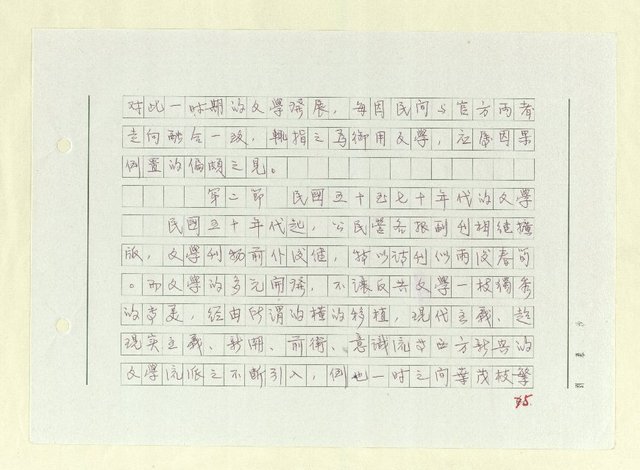 對此一時期的文學發展，每因民間與官方兩者
走向融合一致，輒指之為御用文學，應屬因果
倒置的偏頗之見。
第二節 民國五十至七十年代的文學
民國五十年代起，公民營各報副刊相繼擴
版，文學刊物前仆後繼，特以詩刊似雨後春筍
。而文學的多元開發，不讓反共文學一枝獨秀
的專美，經由所謂的橫的移植，現代主義、超
現實主義、新潮、前衛、意識流等西方新興的
文學流派之不斷引入，倒也一時之間葉茂枝繁
75.